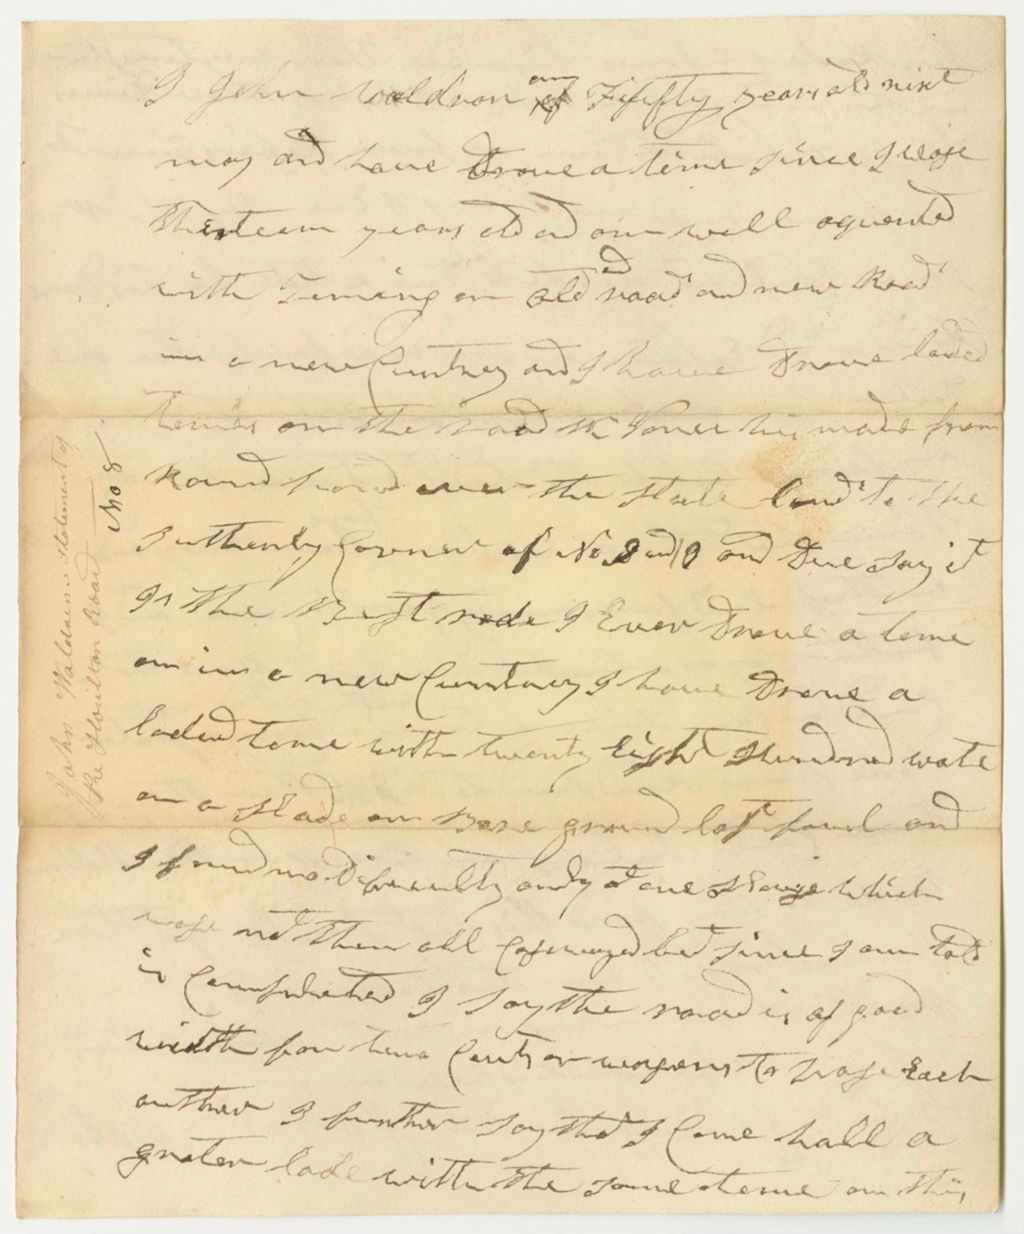 I John Waldron am Fiffty years old next
may and have Drove a teme since I wase
Thirteen years old ad am well aquented
with Teming on old ad road and new Road
in a new Cuntrey and I have Drove laded
temes on the road Mr his made from
Pond over the State land to the
Sutherly Corner of No 9 and Due Say it
Is the Best rode I Ever Drove a teme
on in a new Cuntrey I have Drove a
laded teme with twenty Eight Hundred wate
on a Slade on Bare ground last and
I found no Difficulty only at one which
wase not then all but Since I am told
is Compleated I Say the road is of good
width for two Carts or wagons to pase Each
outher I further Say that I Came hall a
grater lade with the Same teme on this
John Waldrons Statement of
the Houlton Road
No 8